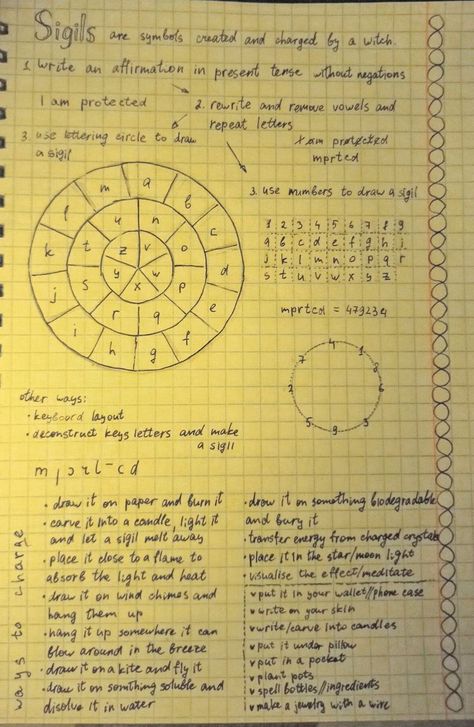 Sigils are symbols created and charged by a witch.
1. Write an affirmation in present tense without negations
I am protected
2. rewrite and remove vowels and
repeat letters
I am protected
mprtcd
3. use lettering circle to draw
a sigil
a b c d e f g h i j k l m
n o p q r s t u
v w x y z
3. use numbers to draw a sigil
1 2 3 4 5 6 7 8 9
a b c d e f g h i
j k l m n o p q r
s t u v w x y z
mprtcd = 479234
4 1 8 6 3 9 5 2 7
other ways:
• keyboard layout
• deconstruct keys letters and make
a sigil
ways to charge
• draw it on paper and burn it
• carve it into a candle, light it
and let a sigil melt away
• place it close to a flame to
absorb the light and heat
• draw it on wind chimes and
hang them up
• hang it up somewhere it can
blow around in the breeze
• draw it on a kite and fly it
• draw it on somthing soluble and
disolve it in water
• draw it on something biodegradable
and bury it
• transfer energy from charged crystals
• place it in the star/moon light
• visualise the effect/meditate
v put it in your wallet//phone case
v write on your skin
v write/carve into candles
v put it under pillow
v put in a pocket
v plant pots
v spell bottles//ingredients
v make a jewelry with a wire